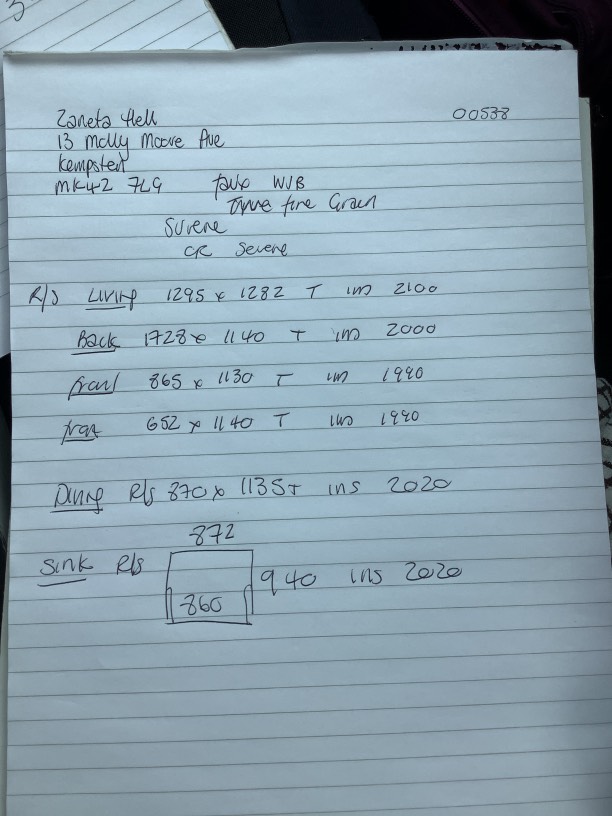 00538
Zaneta Hell
13 Molly Moore Ave
Kempsten
MK42 7LG faux W/B
True fine Grain
Surene
CR Severe
R/S Living 1295 x 1282 T ins 2100
Back 1728 x 1140 T ins 2000
front 865 x 1130 T ins 1990
front 652 x 1140 T ins 1990
Dining R/S 870 x 1135 T ins 2020
872
Sink R/S 940 ins 2020
860